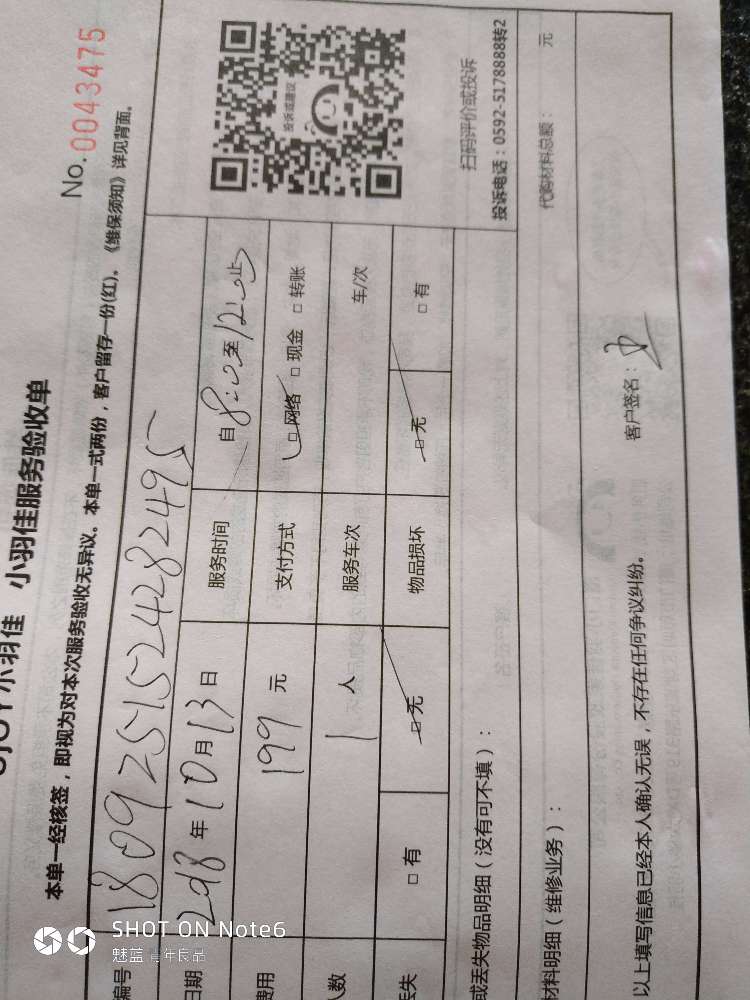 小羽佳 小羽佳服务验收单
No.0043475
本单一经核签，即视为对本次服务验收无异议。本单一式两份，客户留存一份(红)。《维保须知》详见背面。
编号 1809251524282495
日期 2018年10月13日 服务时间 自8:00至12:00止
费用 199元 支付方式 □网络 □现金 □转账
人数 1人 服务车次 车/次
丢失 □有 □无 物品损坏 □无 □有
投诉或建议
扫码评价或投诉
投诉电话：0592-5178888转2
或丢失物品明细（没有可不填）：
材料明细（维修业务）： 代购材料总额： 元
以上填写信息已经本人确认无误，不存在任何争议纠纷。 客户签名：
SHOT ON Note6
魅蓝 青年良品